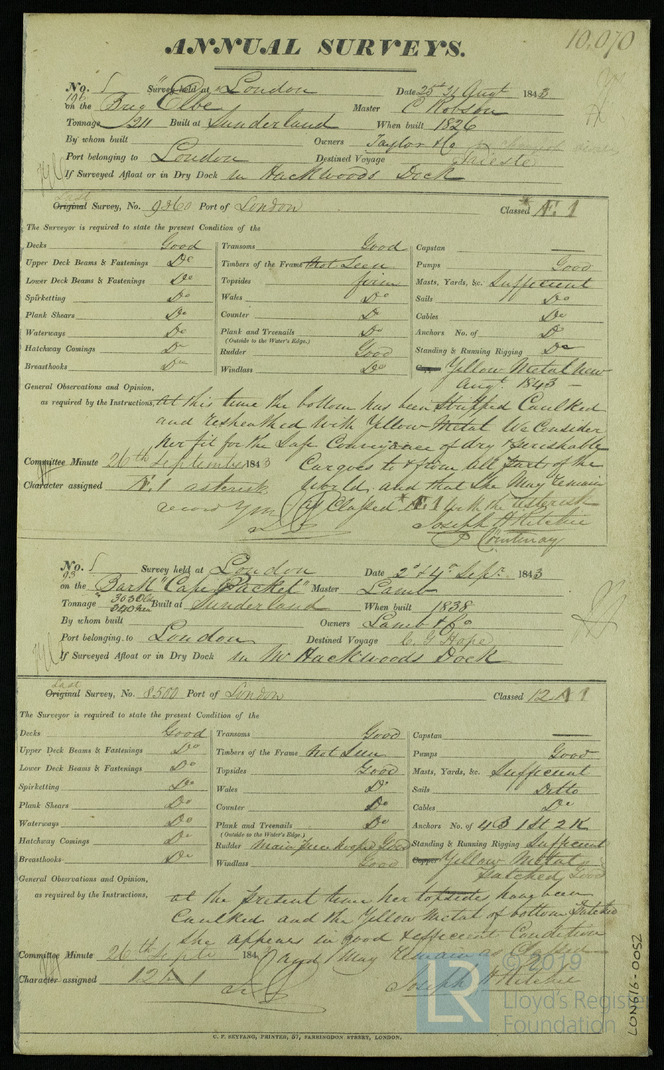 10,070
ANNUAL SURVEYS.
No. Survey held at London Date 25th 31 Augt 1843
on the Brig "Elbe Master C Robson
Tonnage 211 Built at Sunderland When built 1826
By whom built Owners Taylor & Co
Port belonging to London Destined Voyage Trieste
If Surveyed Afloat or in Dry Dock in Hackwoods Dock
Last
Original Survey, No. 9360 Port of London Classed Æ 1
The Surveyor is required to state the present Condition of the
Decks Good
Upper Deck Beams & Fastenings Do
Lower Deck Beams & Fastenings Do
Spirketting Do
Plank Shears Do
Waterways Do
Hatchway Comings Do
Breasthooks Do
Transoms Good
Timbers of the Frame Not Seen
Topsides firm
Wales Do
Counter Do
Plank and Treenails Do
(Outside to the Water's Edge.)
Rudder Good
Windlass Do
Capstan
Pumps Good
Masts, Yards, &c. Sufficient
Sails Do
Cables Do
Anchors No. of Do
Standing & Running Rigging Do
Yellow Metal New
Augt. 1843
General Observations and Opinion,
as required by the Instructions, At this time the bottom has been Stripped Caulked
and Resheathed With Yellow Metal We Consider
her fit for the Safe Conveyance of dry & perishable
Cargoes to & from all Parts of the
World and that She May remain
as Classed Æ 1 with the asterisk
Joseph H Ritchie
P Courtenay
Committee Minute 26th September 1843
Character assigned Æ 1 asterisk
No. 93 Survey held at London Date 2d & 4th Sepr. 1843
on the Bark "Cape Packet" Master Lamb
Tonnage 303 Old
240 New Built at Sunderland When built 1838
By whom built Owners Lamb & Co
Port belonging to London Destined Voyage C. G Hope
If Surveyed Afloat or in Dry Dock in Mr Hackwoods Dock
Last
Original Survey, No. 8500 Port of London Classed 12 A 1
The Surveyor is required to state the present Condition of the
Decks Good
Upper Deck Beams & Fastenings Do
Lower Deck Beams & Fastenings Do
Spirketting Do
Plank Shears Do
Waterways Do
Hatchway Comings Do
Breasthooks Do
Transoms Good
Timbers of the Frame Not Seen
Topsides Good
Wales Do
Counter Do
Plank and Treenails Do
(Outside to the Water's Edge.)
Rudder Main Piece hooped Good
Windlass Good
Capstan
Pumps Good
Masts, Yards, &c. Sufficient
Sails Ditto
Cables Do
Anchors No. of 4 B 1 St 2 K
Standing & Running Rigging Sufficient
Copper Yellow Metal
Patched Good
General Observations and Opinion,
as required by the Instructions, at the present time her topsides have been
Caulked and the Yellow Metal of bottom Patched
She appears in good & efficient Condition
and May remain as Classed
Joseph H Ritchie
Committee Minute 26th Septr 184
Character assigned 12 A 1
LR © 2019
Lloyd's Register
Foundation
LON616-0052
C. F. SEYFANG, PRINTER, 57, FARRINGDON STREET, LONDON.